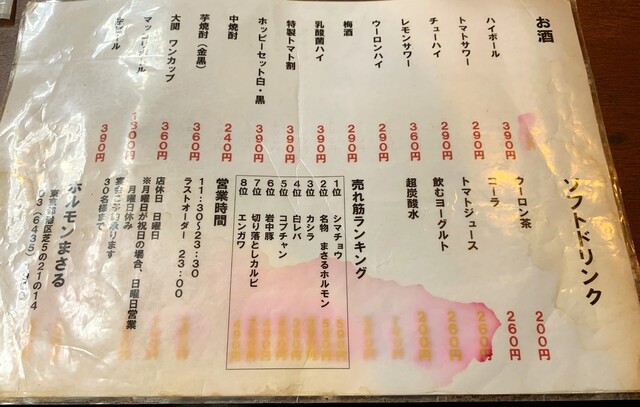 お酒
ハイボール 390円
トマトサワー 290円
チューハイ 290円
レモンサワー 360円
ウーロンハイ 290円
梅酒 290円
乳酸菌ハイ 390円
特製トマト割 390円
ホッピーセット白・黒 390円
中焼酎 240円
芋焼酎(金黒) 360円
大関 ワンカップ 360円
マッコリボトル 1300円
生ビール 390円
ソフトドリンク
ウーロン茶 200円
コーラ 260円
トマトジュース 260円
飲むヨーグルト 260円
超炭酸水 200円
売れ筋ランキング
1位 シマチョウ
2位 名物 まさるホルモン
3位 カシラ
4位 白レバ
5位 コブチャン
6位 岩中豚
7位 切り落としカルビ
8位 エンガワ
営業時間
11:30〜23:30
ラストオーダー 23:00
店休日 日曜日
※月曜日が祝日の場合、日曜日営業
月曜日休み
宴会ご予約承ります
30名様まで
ホルモンまさる
東京都港区芝5の21の14
03(6435)